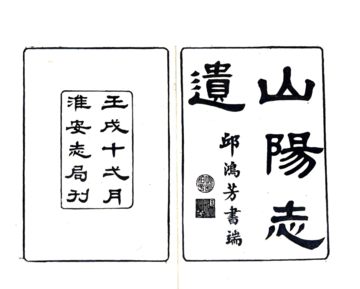 山陽志
遺
邱鴻芳書端
壬戌十弌月
淮安志局刋